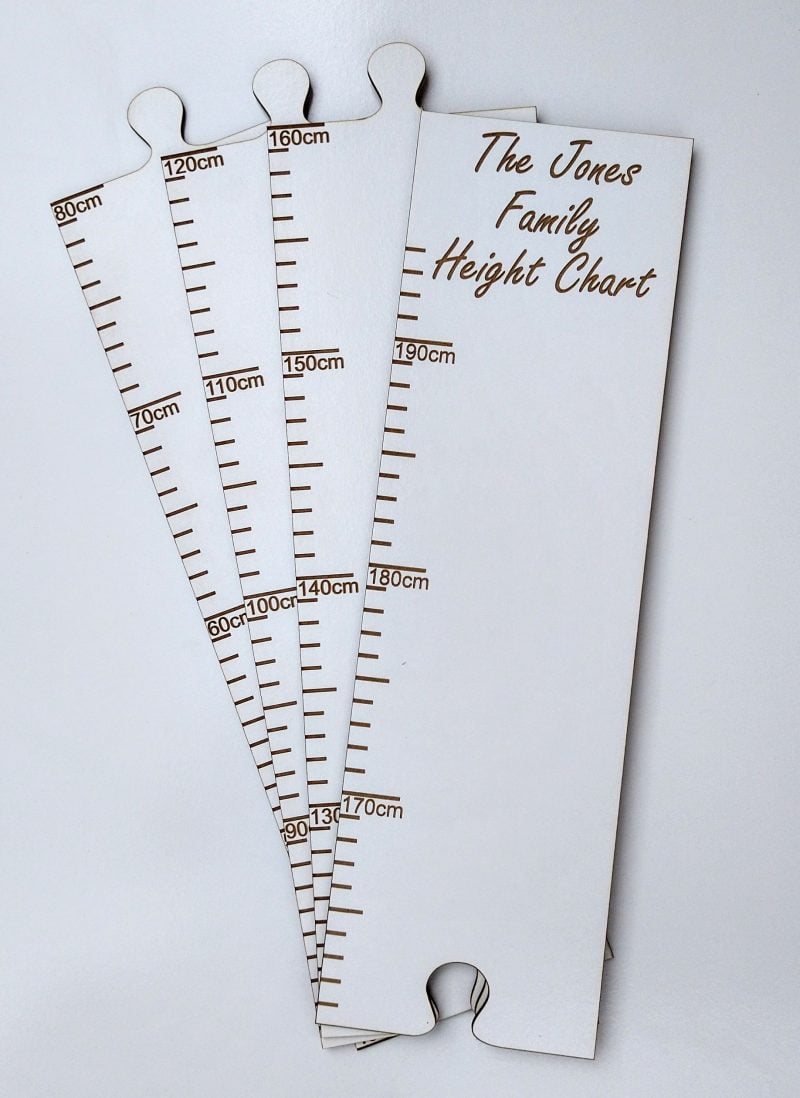 The Jones
Family
Height Chart
80cm
70cm
60cm
120cm
110cm
100cm
90
160cm
150cm
140cm
130
190cm
180cm
170cm